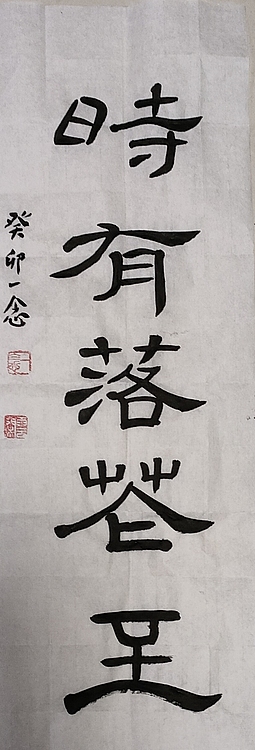 時有落花至
癸卯一念